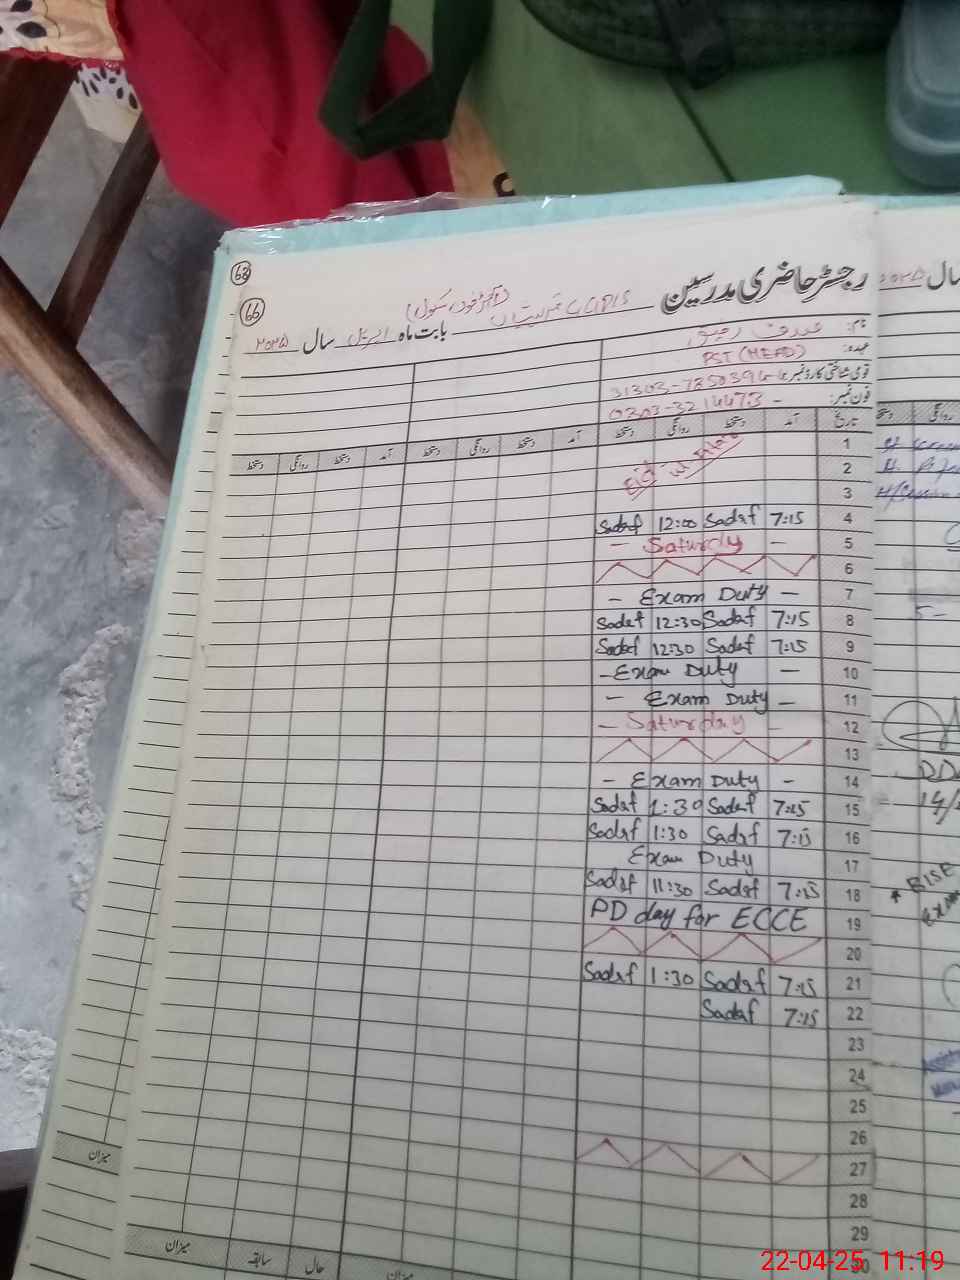 62
66
رجسٹر حاضری مدرسین
بابت ماہ اپریل سال ۲۰۲۵
نام:
عہدہ: PST (HEAD)
قومی شناختی کارڈ نمبر
فون نمبر: 0303-3214473
تاریخ آمد دستخط روانگی دستخط آمد دستخط روانگی دستخط آمد دستخط روانگی دستخط
1
2 Eid ul
3
4 7:15 Sadaf 12:00 Sadaf
5 - Saturdy -
6
7 - Exam Duty -
8 7:15 Sadaf 12:30 Sadaf
9 7:15 Sadaf 12:30 Sadaf
10 - Exam Duty -
11 - Exam Duty -
12 - Saturday -
13
14 - Exam Duty -
15 7:15 Sadaf 1:30 Sadaf
16 7:15 Sadaf 1:30 Sadaf
17 Exam Duty
18 7:15 Sadaf 11:30 Sadaf
19 PD day for ECCE
20
21 7:15 Sadaf 1:30 Sadaf
22 7:15 Sadaf
23
24
25
26
27
28
29
30
میزان
میزان سابقہ حال میزان
سال
روانگی
BISE
22-04-25 11:19